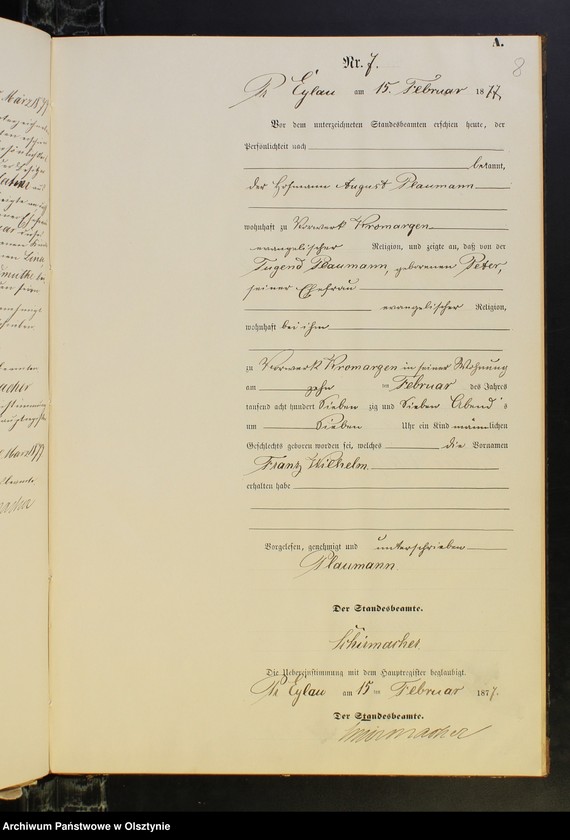 A.
8
Nr. 7.
Pr. Eylau am 15. Februar 1877
Vor dem unterzeichneten Standesbeamten erschien heute, der
Persönlichkeit nach
bekannt,
der Hofmann August Plaumann
wohnhaft zu Vorwerk Kromargen
evangelischer Religion, und zeigte an, daß von der
Plaumann, geborenen Peter,
seiner Ehefrau
evangelischer Religion,
wohnhaft bei ihm
zu Vorwerk Kromargen in seiner Wohnung
am zehn ten Februar des Jahres
tausend acht hundert Sieben zig und Sieben Abend's
um Sieben Uhr ein Kind männlichen
Geschlechts geboren worden sei, welches die Vornamen
Franz Wilhelm
erhalten habe
Vorgelesen, genehmigt und unterschrieben
Plaumann
Der Standesbeamte.
Schirmacher
Die Uebereinstimmung mit dem Hauptregister beglaubigt.
Pr. Eylau am 15 ten Februar 1877.
Der Standesbeamte.
Schirmacher
Archiwum Państwowe w Olsztynie